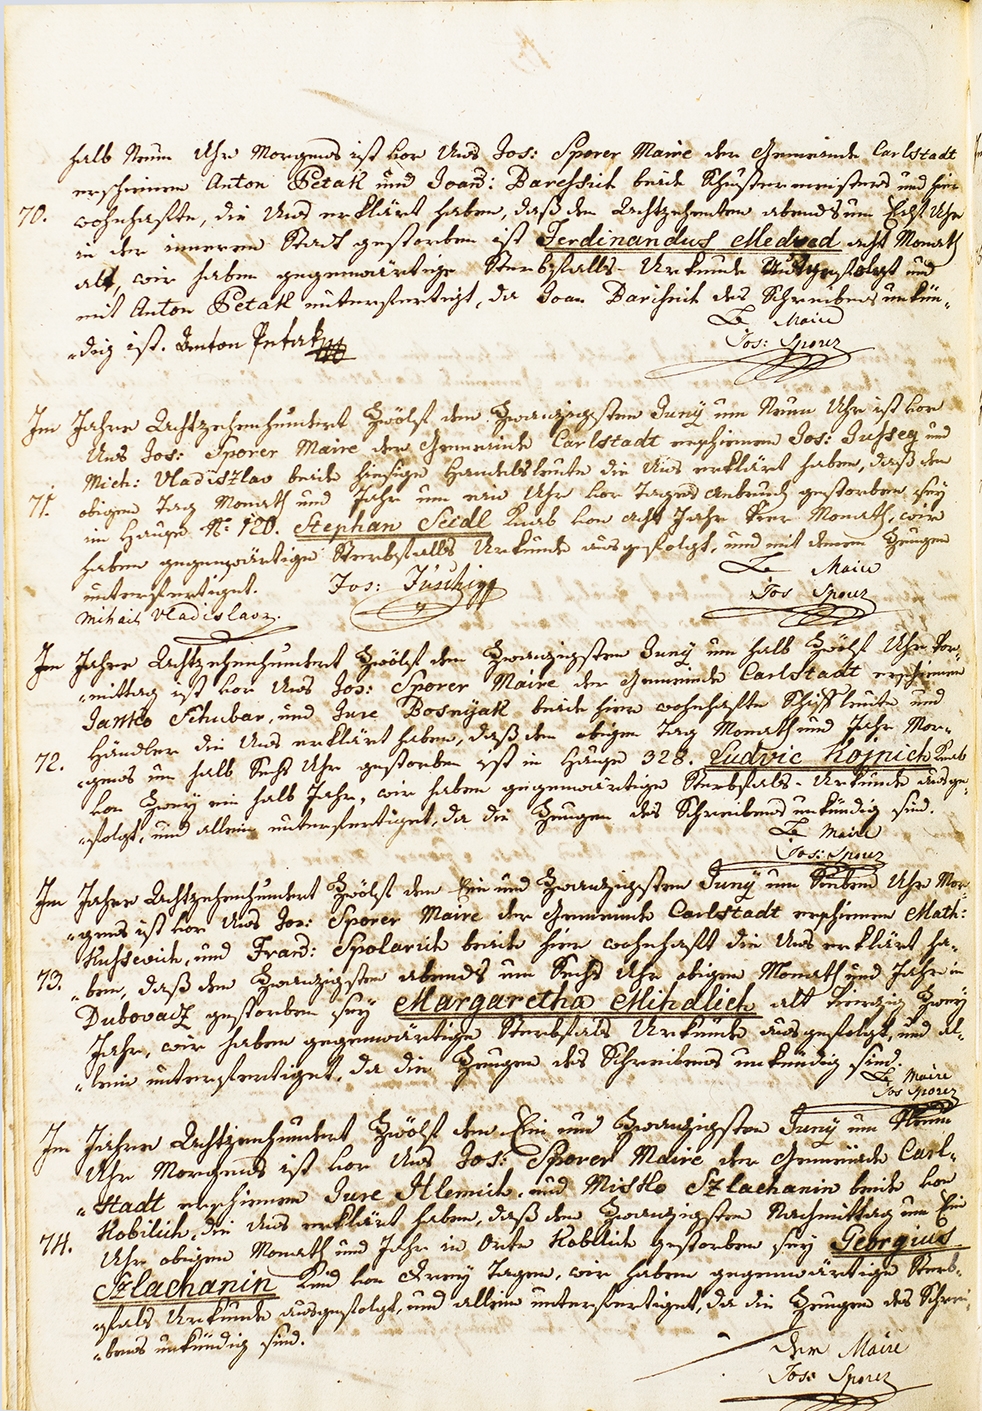 halb Neun Uhr Morgens ist vor Uns Jos: Sporer Maire der Gemeinde Carlstadt
erschienen Anton Petak und Joan: Barchich beide Schustermeisters und hier
70. wohnhafte, die Uns erklärt haben, daß den Achtzehenten abends um Uhr
in der inneren Stadt gestorben ist Ferdinandus Medved acht Monath
alt, wir haben gegenwärtige Sterbfalls-Urkunde ausgefolgt und
mit Anton Petak unterfertigt, da Joan Barchich des Schreibens unkün-
-dig ist. Anton Petak
Le Maire
Jos: Sporer
Im Jahre Achtzehenhundert Zwölf den Zwanzigsten Juny um Neun Uhr ist vor
Uns Jos: Sporer Maire der Gemeinde Carlstadt erschienen Jos: und
Mich: Vladiszlav beide hiesige Handelsleute die Uns erklärt haben, daß den
71. obigen Tag Monath und Jahr um ein Uhr vor Tages Anbruch gestorben sey
im Hause Nº 120. Stephan Seidl Knab von acht Jahr vier Monath, wir
haben gegenwärtige Sterbfalls Urkunde ausgefolgt, und mit denen Zeugen
unterfertiget. Jos:
Le Maire
Mihail Vladislav
Jos Sporer
Im Jahre Achtzehenhundert Zwölf den Zwanzigsten Juny um halb Zwölf Uhr Vor-
-mittag ist vor Uns Jos: Sporer Maire der Gemeinde Carlstadt erschienen
Janko Schubar, und Jure Bosnyak beide hier wohnhafte Schiffleute und
Händler die Uns erklärt haben, daß den obigen Tag Monath und Jahr Mor-
72. -gens um halb Sechs Uhr gestorben ist in Hause 328. Ludvic Kojnich Knab
von Zwey ein halb Jahr, wir haben gegenwärtige Sterbfals-Urkunde ausge-
-folgt, und allein unterfertiget, da die Zeugen des Schreibens unkündig sind.
Le Maire
Jos: Sporer
Im Jahre Achtzehenhundert Zwölf den Ein und Zwanzigsten Juny um Sieben Uhr Mor-
-gens ist vor Uns Jos: Sporer Maire der Gemeinde Carlstadt erschienen Math:
und Franz: Spolarich beide hier wohnhaft die Uns erklärt ha-
73. -ben, daß den Zwanzigsten abends um Sechs Uhr obigen Monath und Jahr in
Dubovacz gestorben sey Margaretha Mihalich alt vierzig Zwey
Jahr, wir haben gegenwärtige Sterbfals Urkunde ausgefolgt, und al-
-lein unterfertiget, da die Zeugen des Schreibens unkündig sind.
Le Maire
Jos Sporer
Im Jahre Achtzenhundert Zwölf den Ein und Zwanzigsten Juny um Neun
Uhr Morgens ist vor Uns Jos: Sporer Maire der Gemeinde Carl-
-stadt erschienen Jure und Mishko Szlachanin beide von
Kobilich, die Uns erklärt haben, daß den Zwanzigsten Nachmittag um Ein
74. Uhr obigen Monath und Jahr in Orte Kobilich gestorben sey Georgius
Szlachanin Kind von drey Tagen, wir haben gegenwärtige Sterb-
-fals Urkunde ausgefolgt, und allein unterfertiget, da die Zeugen des Schrei-
-bens unkündig sind.
Der Maire
Jos: Sporer